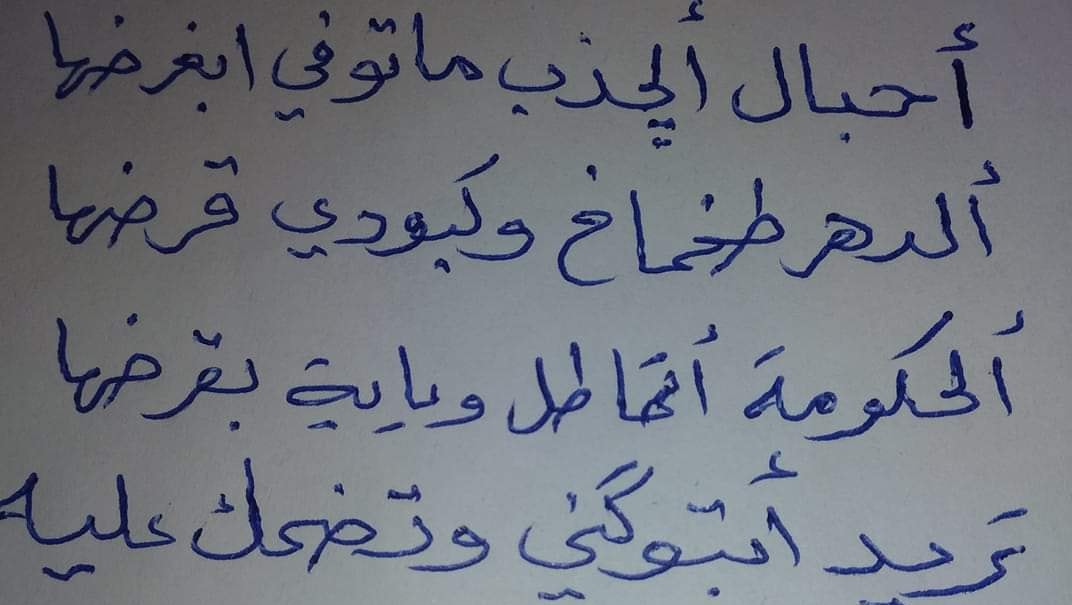 أحبال ألچذب ماتوفي ابغرضها
ألدهر طخماخ وكبودي قرضها
ألحكومة أتماطل وياية بقرضها
تريد أتبوگني وتضحك عليه